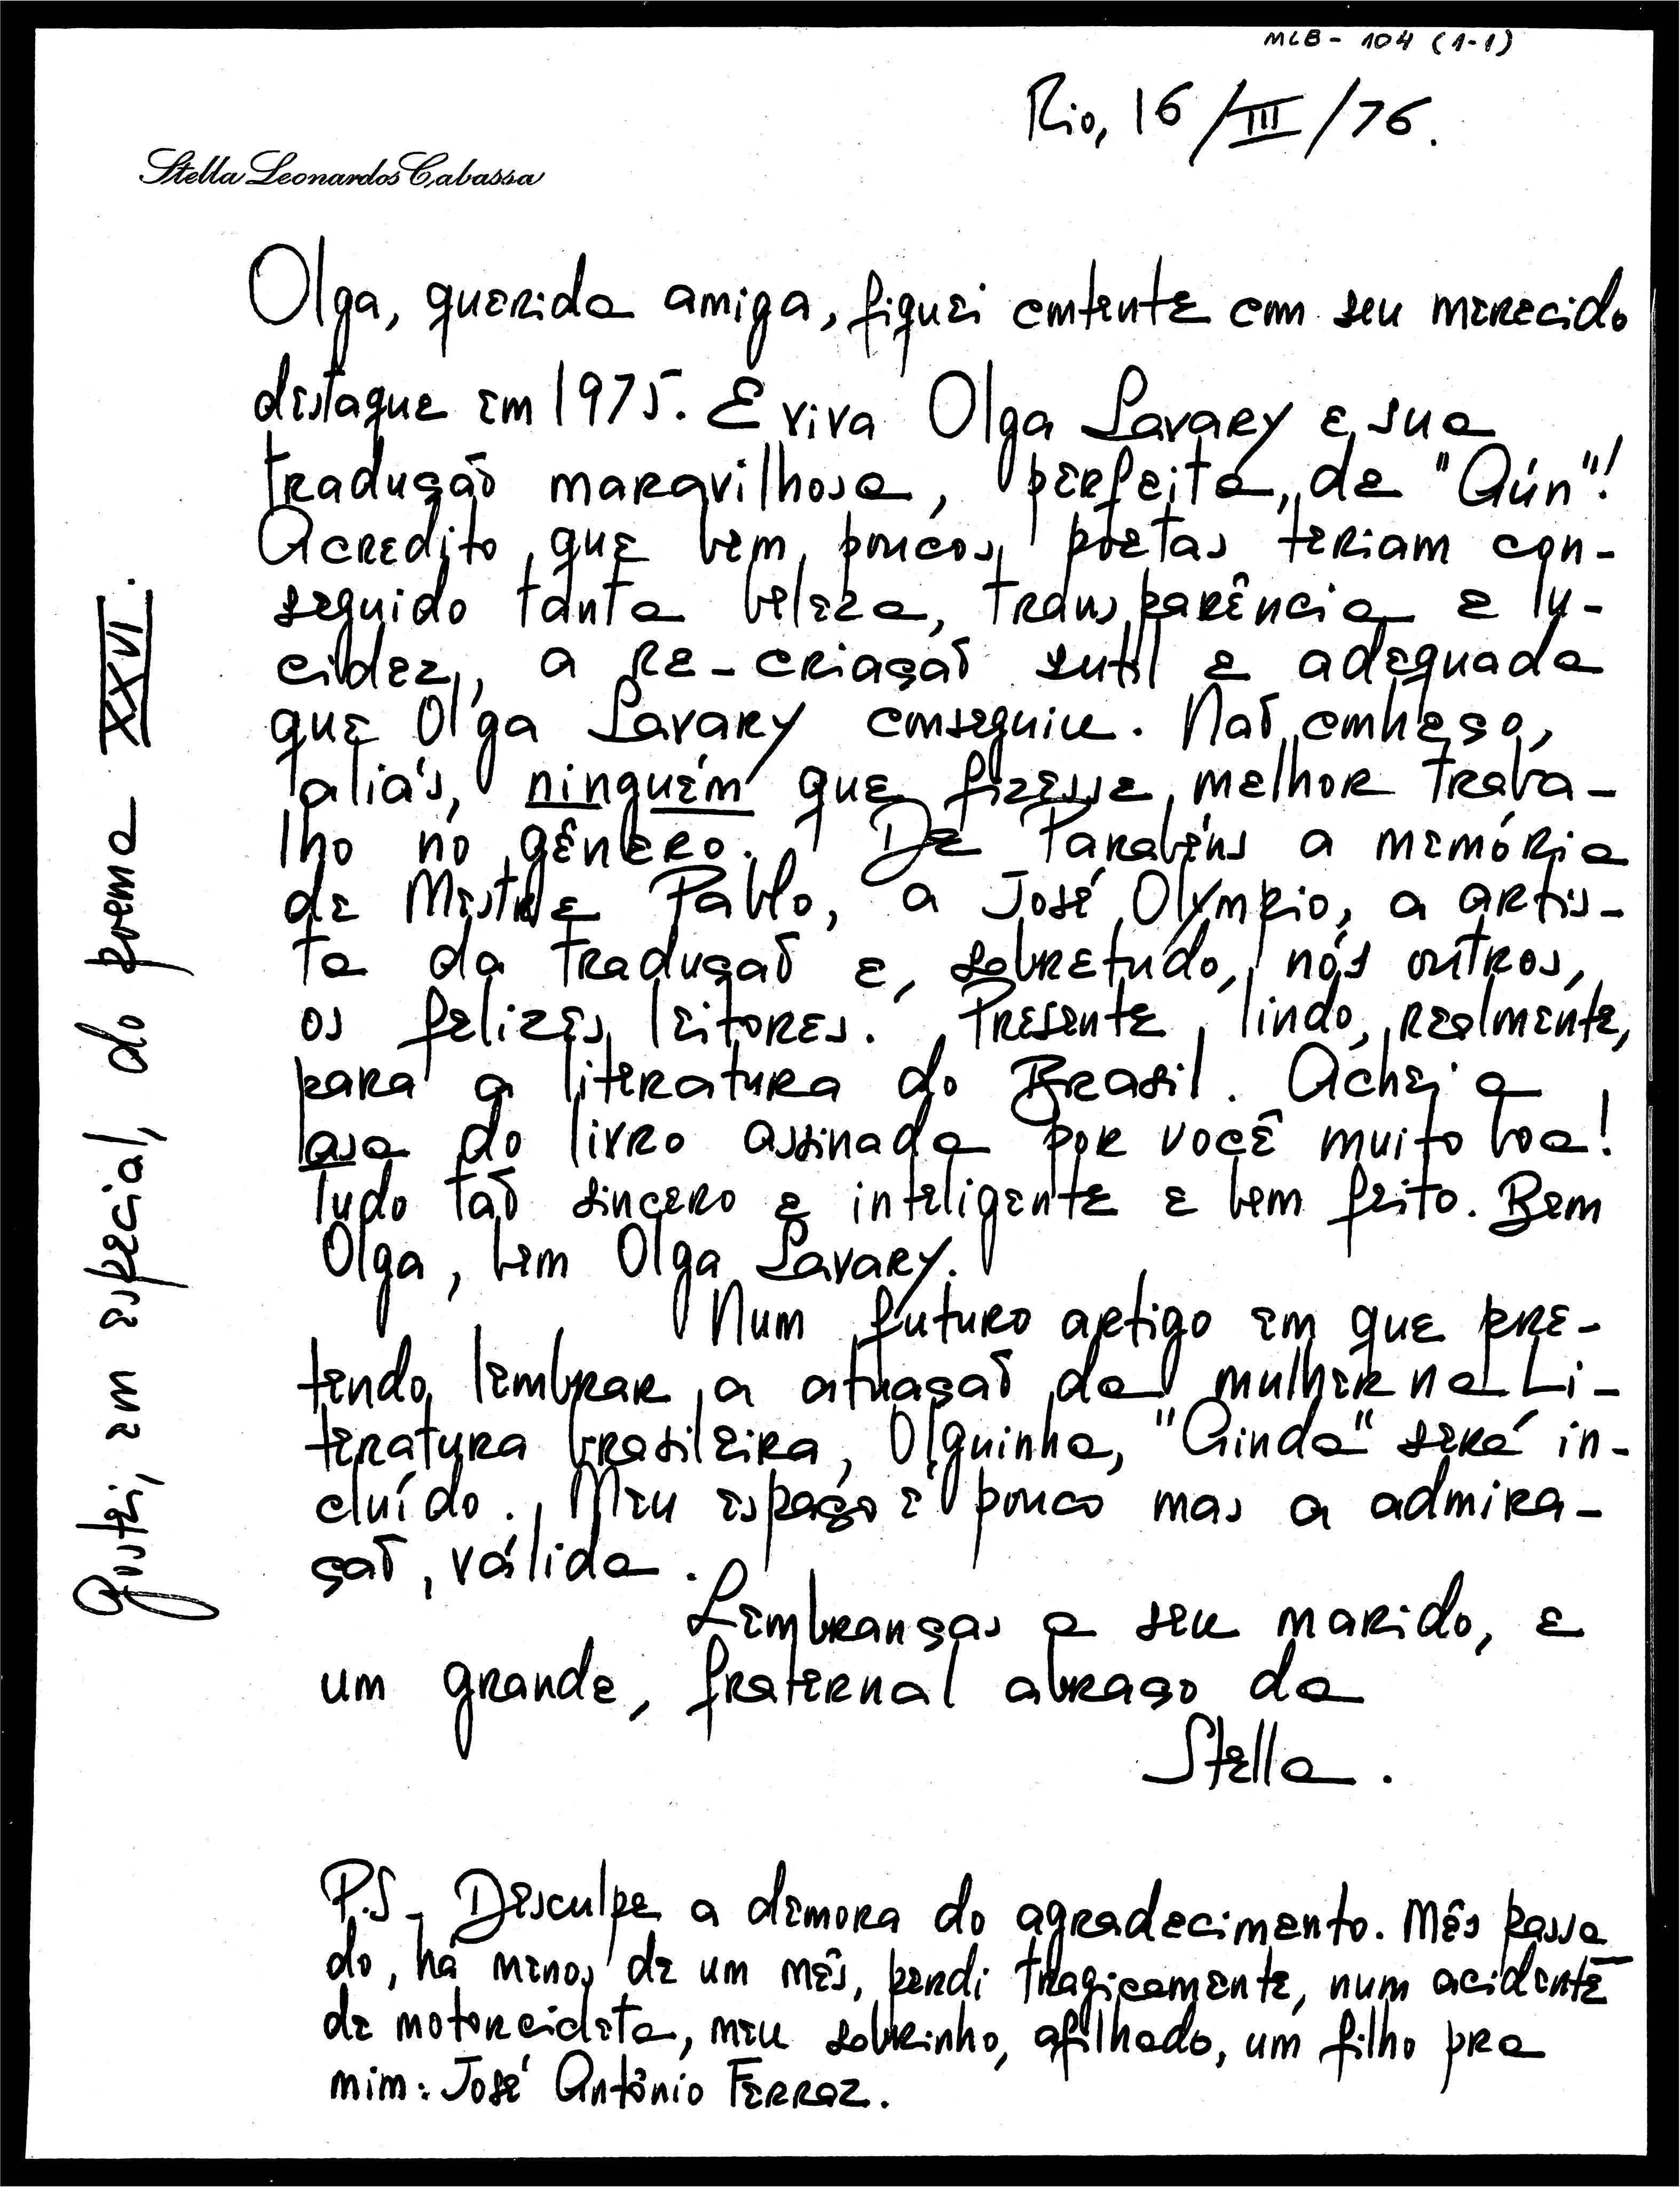 MLB - 104 (1-1)
Rio, 16/III/76.
Stella Leonardos Cabassa
Olga, querida amiga, fiquei contente com seu merecido
destaque em 1975. E viva Olga Savary e sua
tradução maravilhosa, perfeita, de "Aún"!
Acredito que bem poucos poetas teriam con-
seguido tanta beleza, transparência e lu-
cidez, a re-criação sutil e adequada
que Olga Savary conseguiu. Não conheço,
aliás, ninguém que fizesse melhor traba-
lho no gênero. De Parabéns a memória
de Mestre Pablo, a José Olympio, a artis-
ta da tradução e, sobretudo, nós outros,
os felizes leitores. Presente lindo, realmente,
para a literatura do Brasil. Achei a
asa do livro assinada por você muito boa!
Tudo tão sincero e inteligente e bem feito. Bem
Olga, bem Olga Savary.
Num futuro artigo em que pre-
tendo lembrar a atuação da mulher na Li-
teratura brasileira, Olguinha, "Ainda" será in-
cluído. Meu espaço é pouco mas a admira-
ção, válida.
Lembranças a seu marido, e
um grande, fraternal abraço da
Stella.
P.S - Desculpe a demora do agradecimento. Mês passa
do, há menos de um mês, perdi tragicamente, num acidente
de motorcicleta, meu sobrinho, afilhado, um filho pra
mim: José Antônio Ferraz.
Gostei, em especial, do poema XXVI.